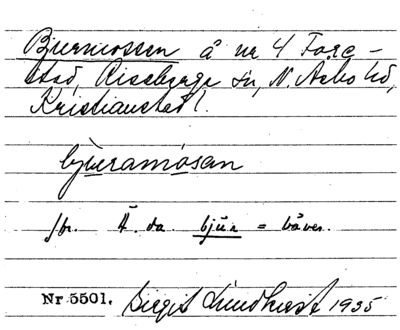 Bjurmossen å nr 4 Fare-
stad, Riseberga sn, N. Åsbo hd,
Kristianstad l.
bjueramosan
jfr. Ä. da. bjur = bäver.
Nr 5501. Birgit Lundkvist 1935